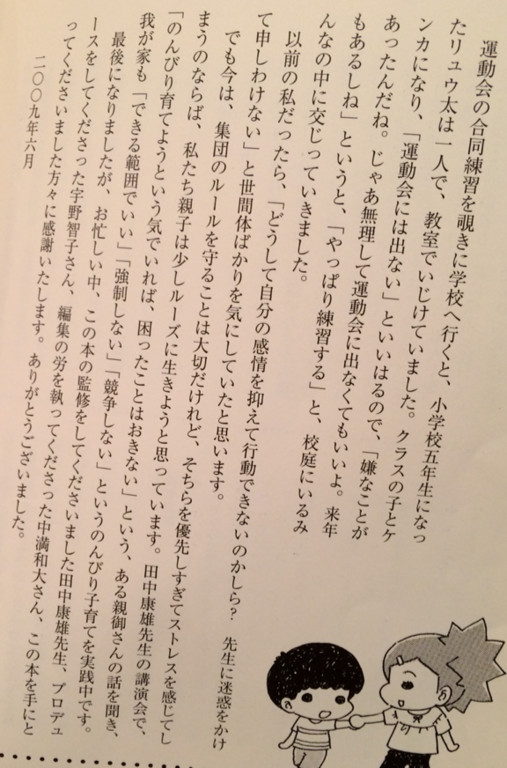 運動会の合同練習を覗きに学校へ行くと、小学校五年生になっ
たリュウ太は一人で、教室でいじけていました。クラスの子とケ
ンカになり、「運動会には出ない」といいはるので、「嫌なことが
あったんだね。じゃあ無理して運動会に出なくてもいいよ。来年
もあるしね」というと、「やっぱり練習する」と、校庭にいるみ
んなの中に交じっていきました。
以前の私だったら、「どうして自分の感情を抑えて行動できないのかしら？　先生に迷惑をかけ
て申しわけない」と世間体ばかりを気にしていたと思います。
でも今は、集団のルールを守ることは大切だけれど、そちらを優先しすぎてストレスを感じてし
まうのならば、私たち親子は少しルーズに生きようと思っています。田中康雄先生の講演会で、
「のんびり育てようという気でいれば、困ったことはおきない」という、ある親御さんの話を聞き、
我が家も「できる範囲でいい」「強制しない」「競争しない」というのんびり子育てを実践中です。
最後になりましたが、お忙しい中、この本の監修をしてくださいました田中康雄先生、プロデュ
ースをしてくださった宇野智子さん、編集の労を執ってくださった中満和大さん、この本を手にと
ってくださいました方々に感謝いたします。ありがとうございました。
二〇〇九年六月